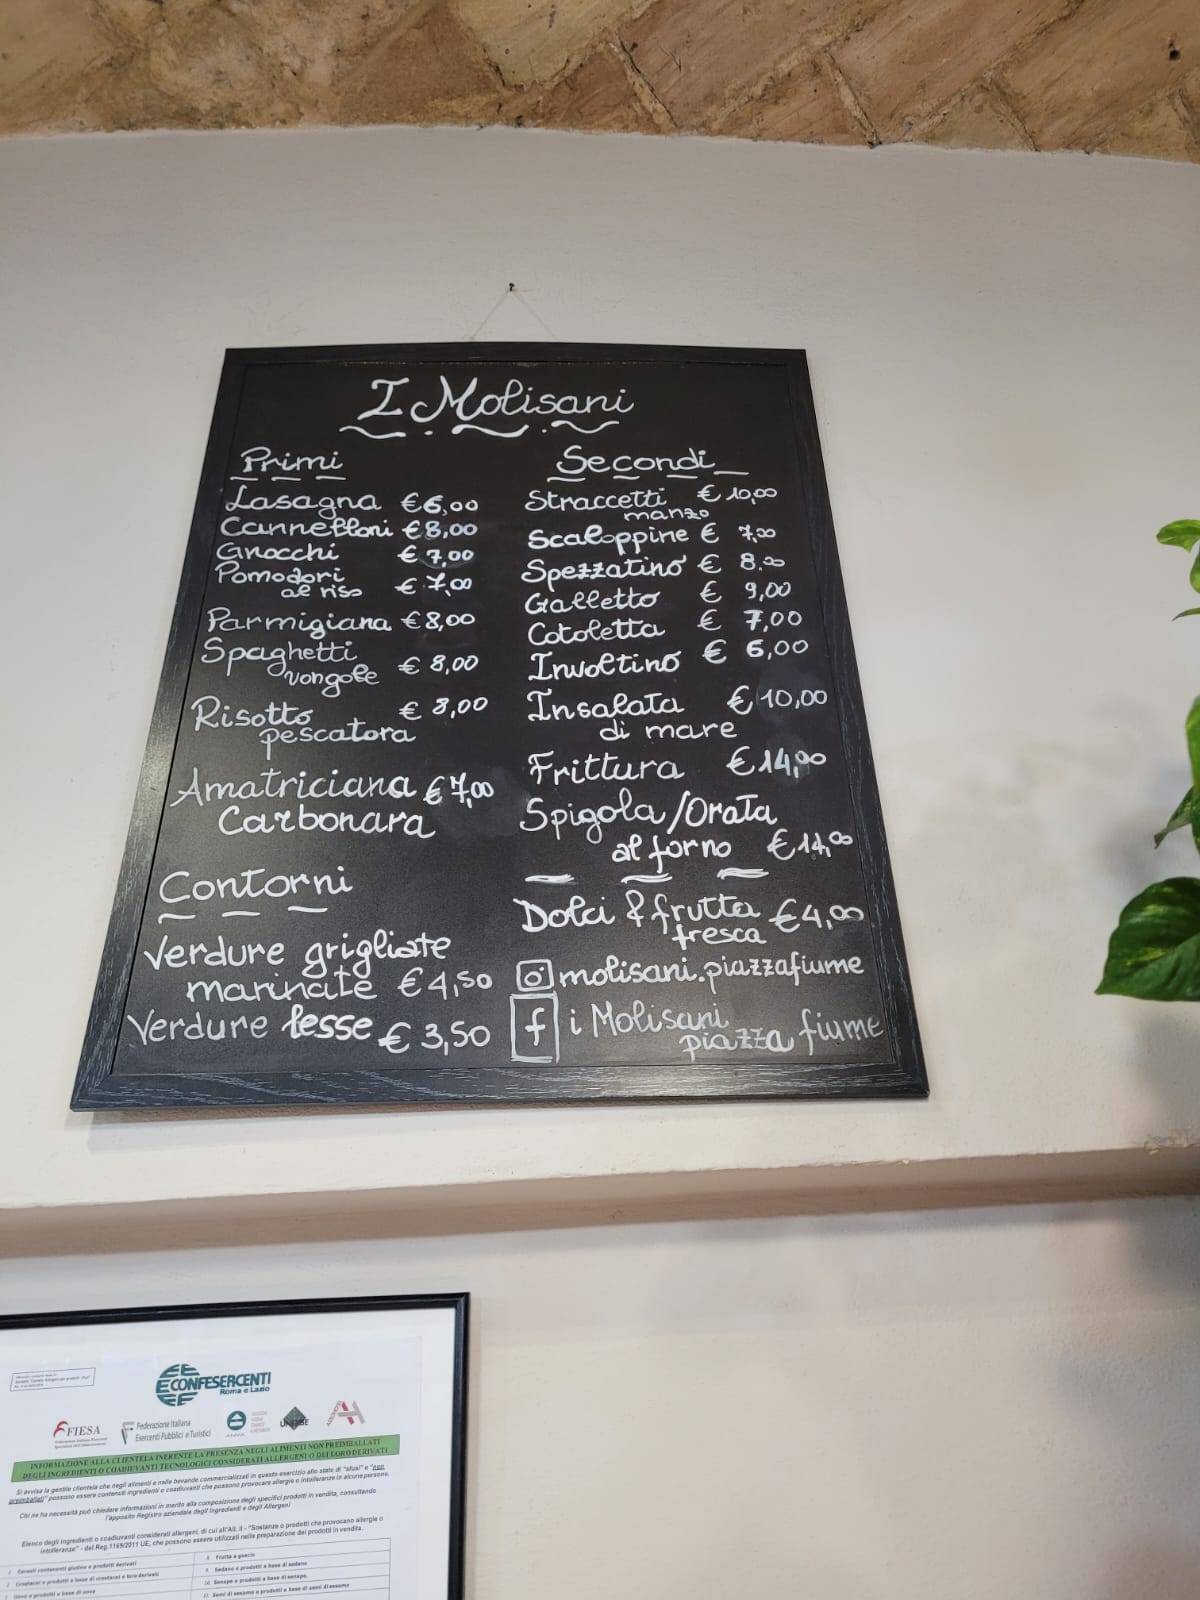 I Molisani
Primi
Lasagna € 6,00
Cannelloni € 8,00
Gnocchi € 7,00
Pomodori € 7,00
al riso
Parmigiana € 8,00
Spaghetti € 8,00
vongole
Risotto € 8,00
pescatora
Amatriciana € 7,00
Carbonara
Contorni
Verdure grigliate
marinate € 4,50
Verdure lesse € 3,50
Secondi
Straccetti € 10,00
manzo
Scaloppine € 7,00
Spezzatino € 8,00
Galletto € 9,00
Cotoletta € 7,00
Involtino € 6,00
Insalata € 10,00
di mare
Frittura € 14,00
Spigola/Orata
al forno € 14,00
Dolci & frutta € 4,00
fresca
molisani.piazzafiume
f i Molisani
piazza fiume
CONFESERCENTI
Roma e Lazio
FIESA
Federazione Italiana
Esercenti Pubblici e Turistici
INFORMAZIONE ALLA CLIENTELA INERENTE LA PRESENZA NEGLI ALIMENTI NON PREIMBALLATI
DEGLI INGREDIENTI O COADIUVANTI TECNOLOGICI CONSIDERATI ALLERGENI O DEI LORO DERIVATI
Si avvisa la gentile clientela che negli alimenti e nelle bevande commercializzati in questo esercizio allo stato di "sfusi" e "non
preimballati" possono essere contenuti ingredienti o coadiuvanti che possono provocare allergie o intolleranze in alcune persone.
Chi ne ha necessità può chiedere informazioni in merito alla composizione degli specifici prodotti in vendita, consultando
l'apposito Registro aziendale degli Ingredienti e degli Allergeni
Elenco degli ingredienti o coadiuvanti considerati allergeni, di cui all'All. II - "Sostanze o prodotti che provocano allergie o
intolleranze" - del Reg.1169/2011 UE, che possono essere utilizzati nella preparazione dei prodotti in vendita.
1. Cereali contenenti glutine e prodotti derivati
2. Crostacei e prodotti a base di crostacei e loro derivati
3. Uova e prodotti a base di uova
8. Frutta a guscio
9. Sedano e prodotti a base di sedano
10. Senape e prodotti a base di senape.
11. Semi di sesamo e prodotti a base di semi di sesamo